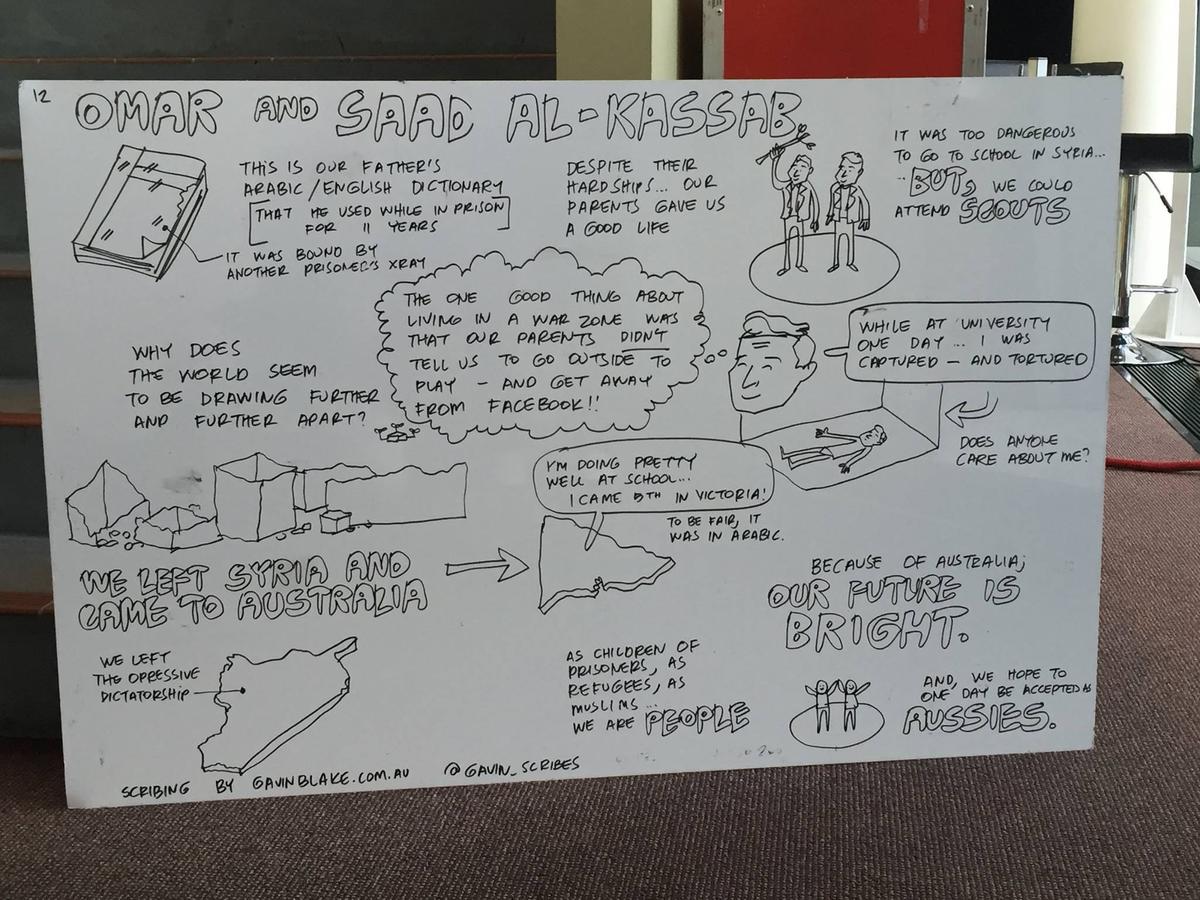 12
OMAR AND SAAD AL-KASSAB
THIS IS OUR FATHER'S
ARABIC/ENGLISH DICTIONARY
[THAT HE USED WHILE IN PRISON
FOR 11 YEARS]
IT WAS BOUND BY
ANOTHER PRISONER'S XRAY
DESPITE THEIR
HARDSHIPS... OUR
PARENTS GAVE US
A GOOD LIFE
IT WAS TOO DANGEROUS
TO GO TO SCHOOL IN SYRIA...
..BUT, WE COULD
ATTEND SCOUTS
WHY DOES
THE WORLD SEEM
TO BE DRAWING FURTHER
AND FURTHER APART?
THE ONE GOOD THING ABOUT
LIVING IN A WAR ZONE WAS
THAT OUR PARENTS DIDN'T
TELL US TO GO OUTSIDE TO
PLAY - AND GET AWAY
FROM FACEBOOK!!
WHILE AT UNIVERSITY
ONE DAY... I WAS
CAPTURED - AND TORTURED
DOES ANYONE
CARE ABOUT ME?
I'M DOING PRETTY
WELL AT SCHOOL...
I CAME 5TH IN VICTORIA!
TO BE FAIR, IT
WAS IN ARABIC.
WE LEFT SYRIA AND
CAME TO AUSTRALIA
WE LEFT
THE OPRESSIVE
DICTATORSHIP
AS CHILDREN OF
PRISONERS, AS
REFUGEES, AS
MUSLIMS...
WE ARE PEOPLE
BECAUSE OF AUSTRALIA;
OUR FUTURE IS
BRIGHT.
AND, WE HOPE TO
ONE DAY BE ACCEPTED AS
AUSSIES.
SCRIBING BY GAVINBLAKE.COM.AU @GAVIN_SCRIBES